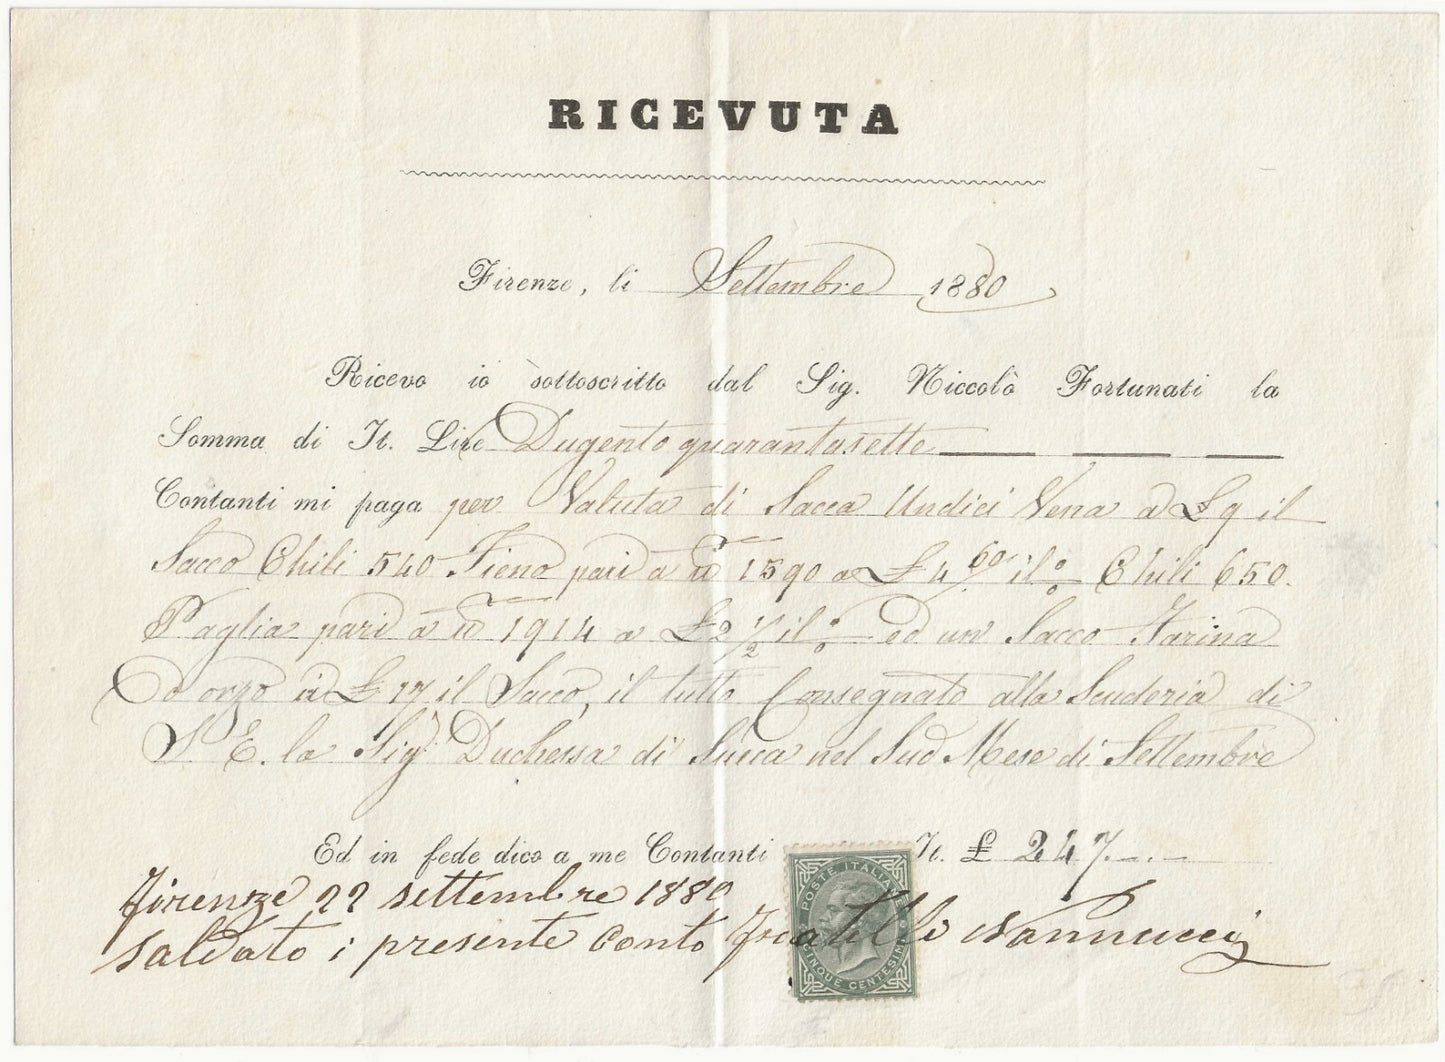 RICEVUTA
Firenze, li Settembre 1880
Ricevo io sottoscritto dal Sig. Niccolò Fortunati la
Somma di It. Lire Dugento quarantasette
Contanti mi paga per Valuta di Sacca Undici Vena a £ 9 il
Sacco Chili 540 Fieno pari a 1590 a £ 4 60 il % Chili 650.
Paglia pari a 1914 a £ 2 1/2 il % ed un Sacco Farina
d orzo a £ 17 il Sacco, il tutto Consegnato alla Scuderia di
S. E. la Sig.ra Duchessa di nel Sud Mese di Settembre
Ed in fede dico a me Contanti It. £ 247.—.—
Firenze 22 settembre 1880
saldato i presente Conto Fratelli Nannucci
POSTE ITALIANE
CINQUE CENTESIMI